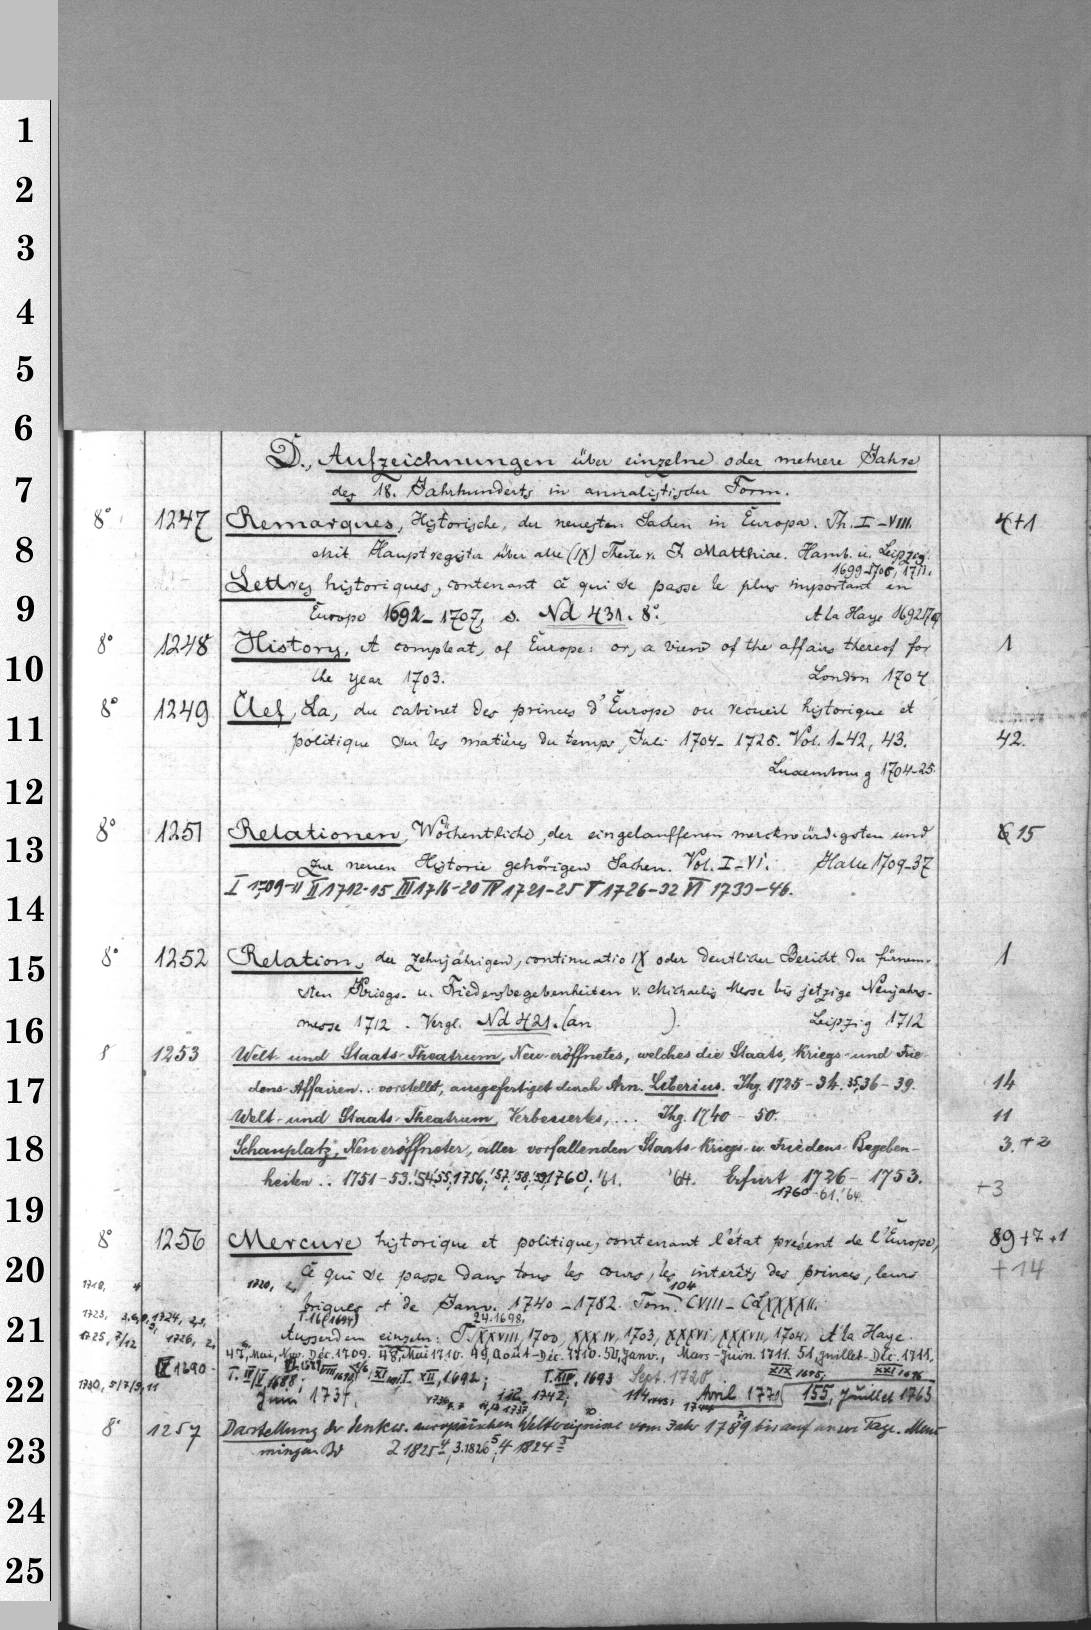 1
2
3
4
5
6
7
8
9
10
11
12
13
14
15
16
17
18
19
20
21
22
23
24
25
D., Aufzeichnungen über einzelne oder mehrere Jahre
des 18. Jahrhunderts in annalistischer Form.
8° 1247 Remarques, Historische, der neuesten Sachen in Europa. Th. I-VIII. 4+1
Mit Hauptregister über alle (IX) Theile v. J. Matthiae. Hamb. u. Leipzig.
1699-1708, 1711.
Lettres historiques, contenant ce qui se passe le plus important en
Europe 1692-1707, s. Nd 431. 8°. A la Haye 1692
8° 1248 History, A compleat, of Europe: or, a view of the affairs thereof for 1
the year 1703. London 1704
8° 1249 Clef, La, du cabinet des princes d'Europe ou recueil historique et
politique sur les matières du temps, Juli 1704-1725. Vol. 1-42, 43. 42.
Luxembourg 1704-25.
8° 1251 Relationen, Wöchentliche, der eingelauffenen merckwürdigsten und 15
zur neuen Historie gehörigen Sachen. Vol. I-VI. Halle 1709-37
I 1709-11 II 1712-15 III 1716-20 IV 1721-25 V 1726-32 VI 1733-46.
8° 1252 Relation, der zehnjährigen, continuatio IX oder deutlicher Bericht der fürnem- 1
sten Kriegs- u. Friedensbegebenheiten v. Michaelis Messe bis jetzige Neujahrs-
messe 1712. Vergl. Nd 421. (an ). Leipzig 1712
8 1253 Welt- und Staats-Theatrum, Neu-eröffnetes, welches die Staats, Kriegs- und Frie-
dens-Affairen .. vorstellet, ausgefertiget durch Arn. Liberius. Thg. 1725-34. 35, 36-39. 14
Welt- und Staats-Theatrum, Verbessertes, ... Thg. 1740-50. 11
Schauplatz, Neueröffneter, aller vorfallenden Staats- Kriegs- u. Friedens-Begeben- 3. +2
heiten .. 1751-53. '54, 55, 1756, '57, '58, 59, 1760, '61. '64. Erfurt 1726-1753.
1760-61, '64. +3
8° 1256 Mercure historique et politique, contenant l'état présent de l'Europe, 89+7+1
ce qui se passe dans tous les cours, les interêts des princes, leurs +14
104
briques et de Janv. 1740-1782. Tom. CVIII-
T.16(1694) 24.1698.
Ausserdem einzeln: T. XXVIII, 1700, XXXIV, 1703, XXXVI, XXXVII, 1704. A la Haye.
47, Mai, Nov. Déc. 1709. 48, Mai 1710. 49, Août-Déc. 1710. 50, Janv., Mars-Juin. 1711. 51, Juillet-Déc. 1711.
XIX 1695; XXI 1696
1690 T. III/V 1688; XII, 1692; T. XIV. 1693 Sept. 1720
Juin 1737. 1742; 114 Avril 1771 155, Juillet 1763
8° 1257 Darstellung der denkw. europäischen Weltereignisse vom Jahr 1789 bis auf unsere Tage. Mem-
mingen Bd 2 1825, 3. 1826, 4 1824